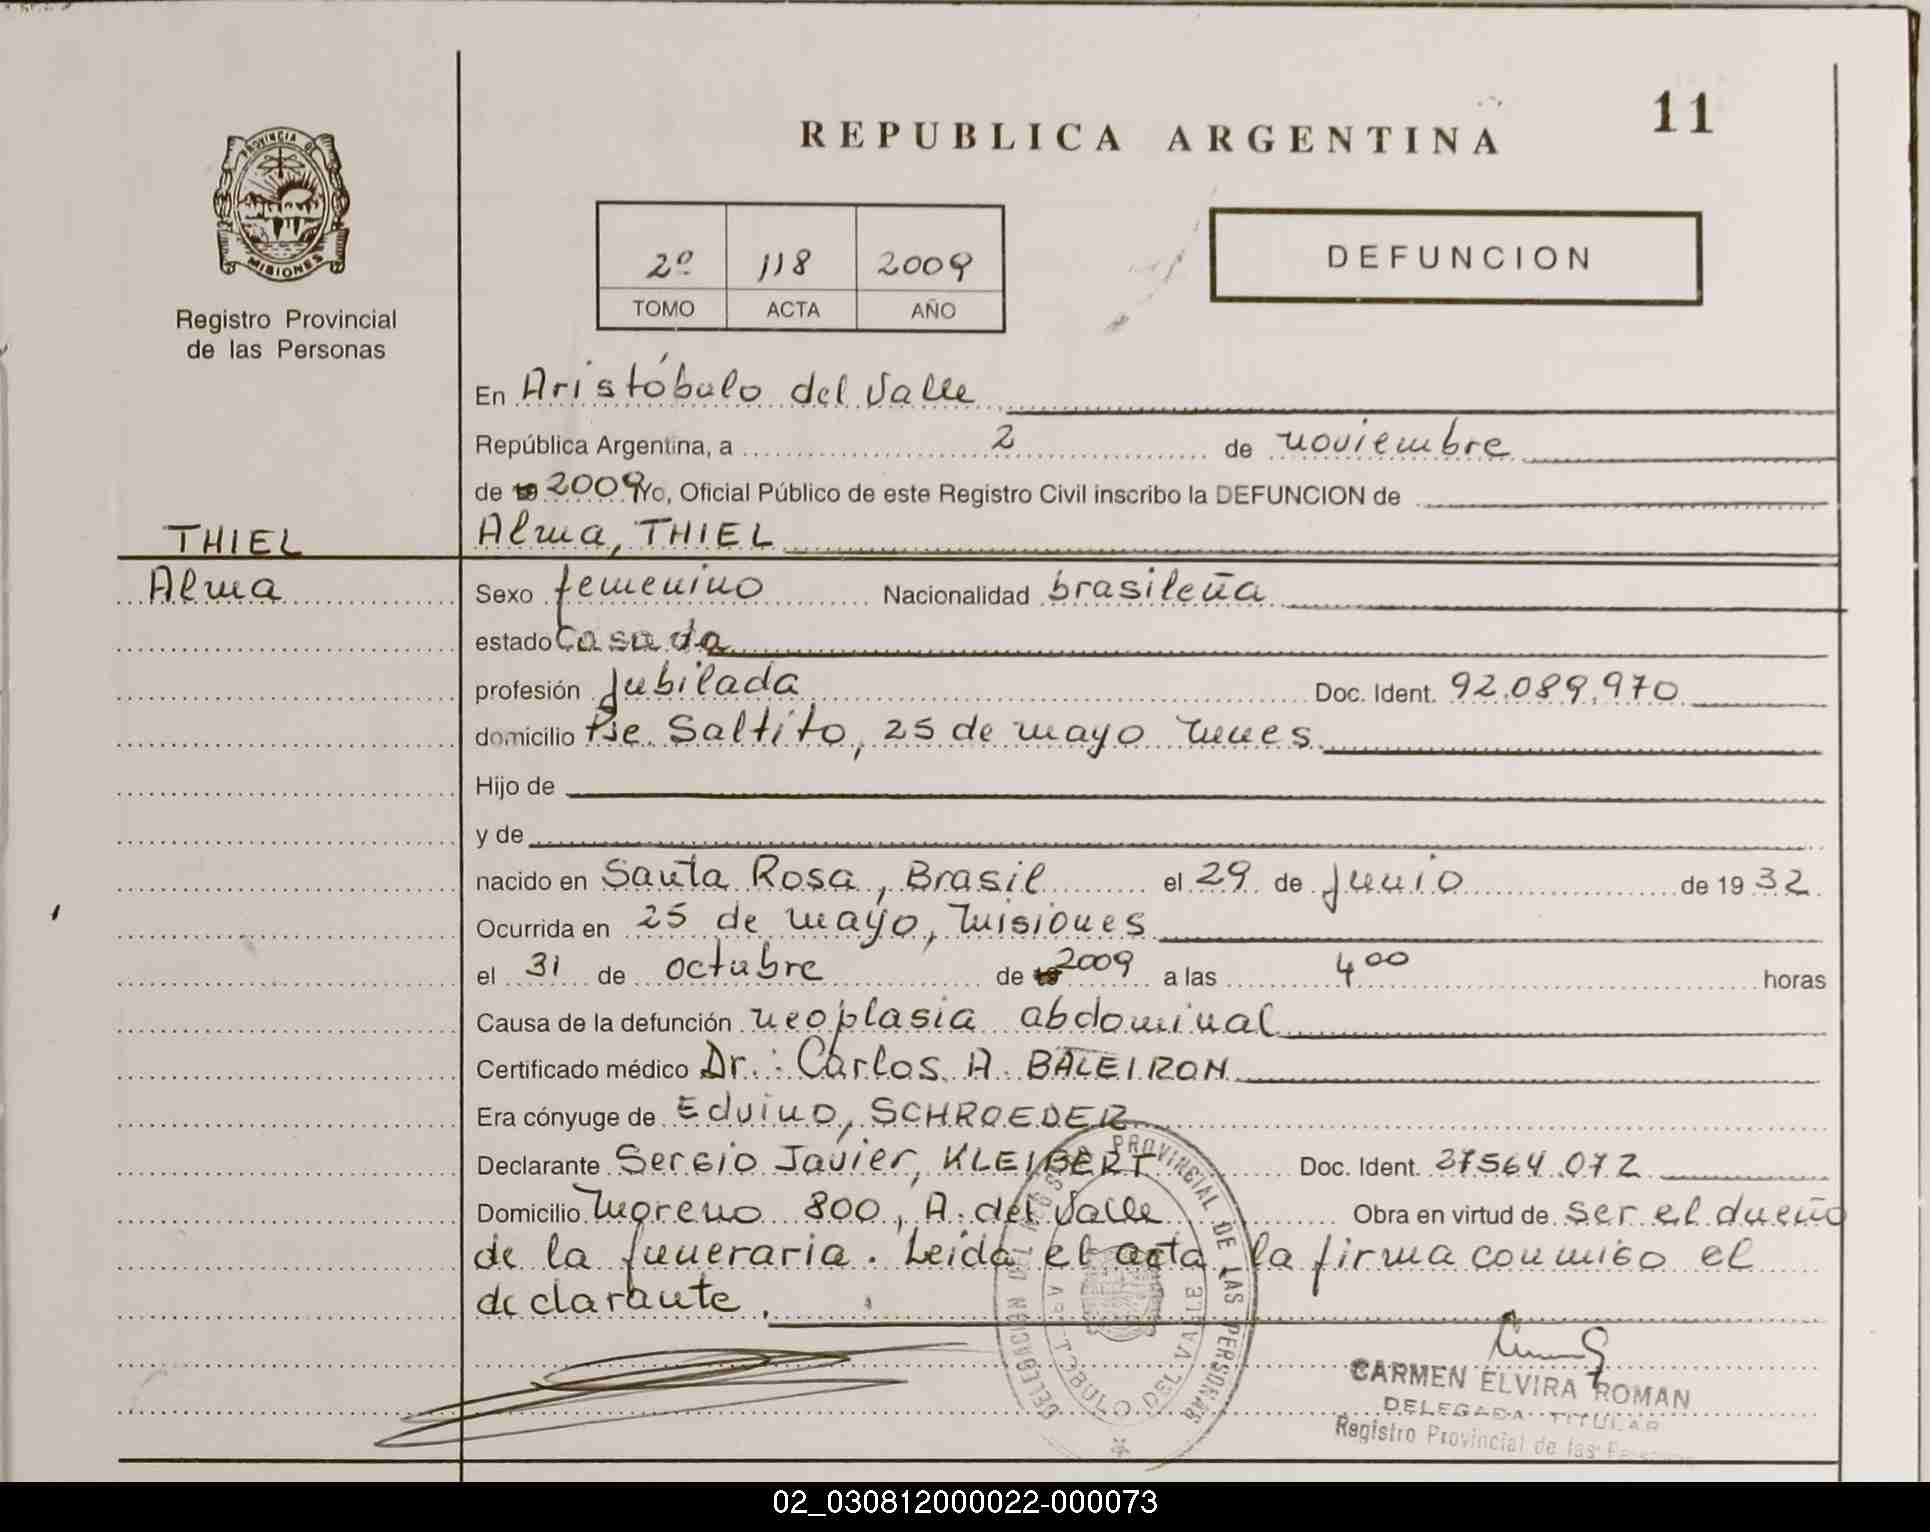 REPUBLICA ARGENTINA
11
PROVINCIA DE
MISIONES
Registro Provincial
de las Personas
2º 118 2009
TOMO ACTA AÑO
DEFUNCION
En Aristóbulo del Valle
República Argentina, a 2 de noviembre
de 19 2009 Yo, Oficial Público de este Registro Civil inscribo la DEFUNCION de
THIEL
Alma, THIEL
Alma
Sexo femenino Nacionalidad brasileña
estado Casada
profesión jubilada Doc. Ident. 92.089.970
domicilio Pje. Saltito, 25 de mayo
Hijo de
y de
nacido en Santa Rosa, Brasil el 29 de junio de 19 32
Ocurrida en 25 de mayo, misiones
el 31 de octubre de 19 2009 a las 4 00 horas
Causa de la defunción neoplasia abdominal
Certificado médico Dr.: Carlos A. BALEIRON
Era cónyuge de Edvino, SCHROEDER
Declarante Sergio Javier, KLEIBERT Doc. Ident. 27564.072
Domicilio Moreno 800, A. del Valle Obra en virtud de ser el dueño
de la funeraria. Leida el acta la firma conmigo el
declarante.
DELEGACION DEL REGISTRO PROVINCIAL DE LAS PERSONAS
ARISTOBULO DEL VALLE
CARMEN ELVIRA ROMAN
DELEGADA TITULAR
Registro Provincial de las Personas
02_030812000022-000073